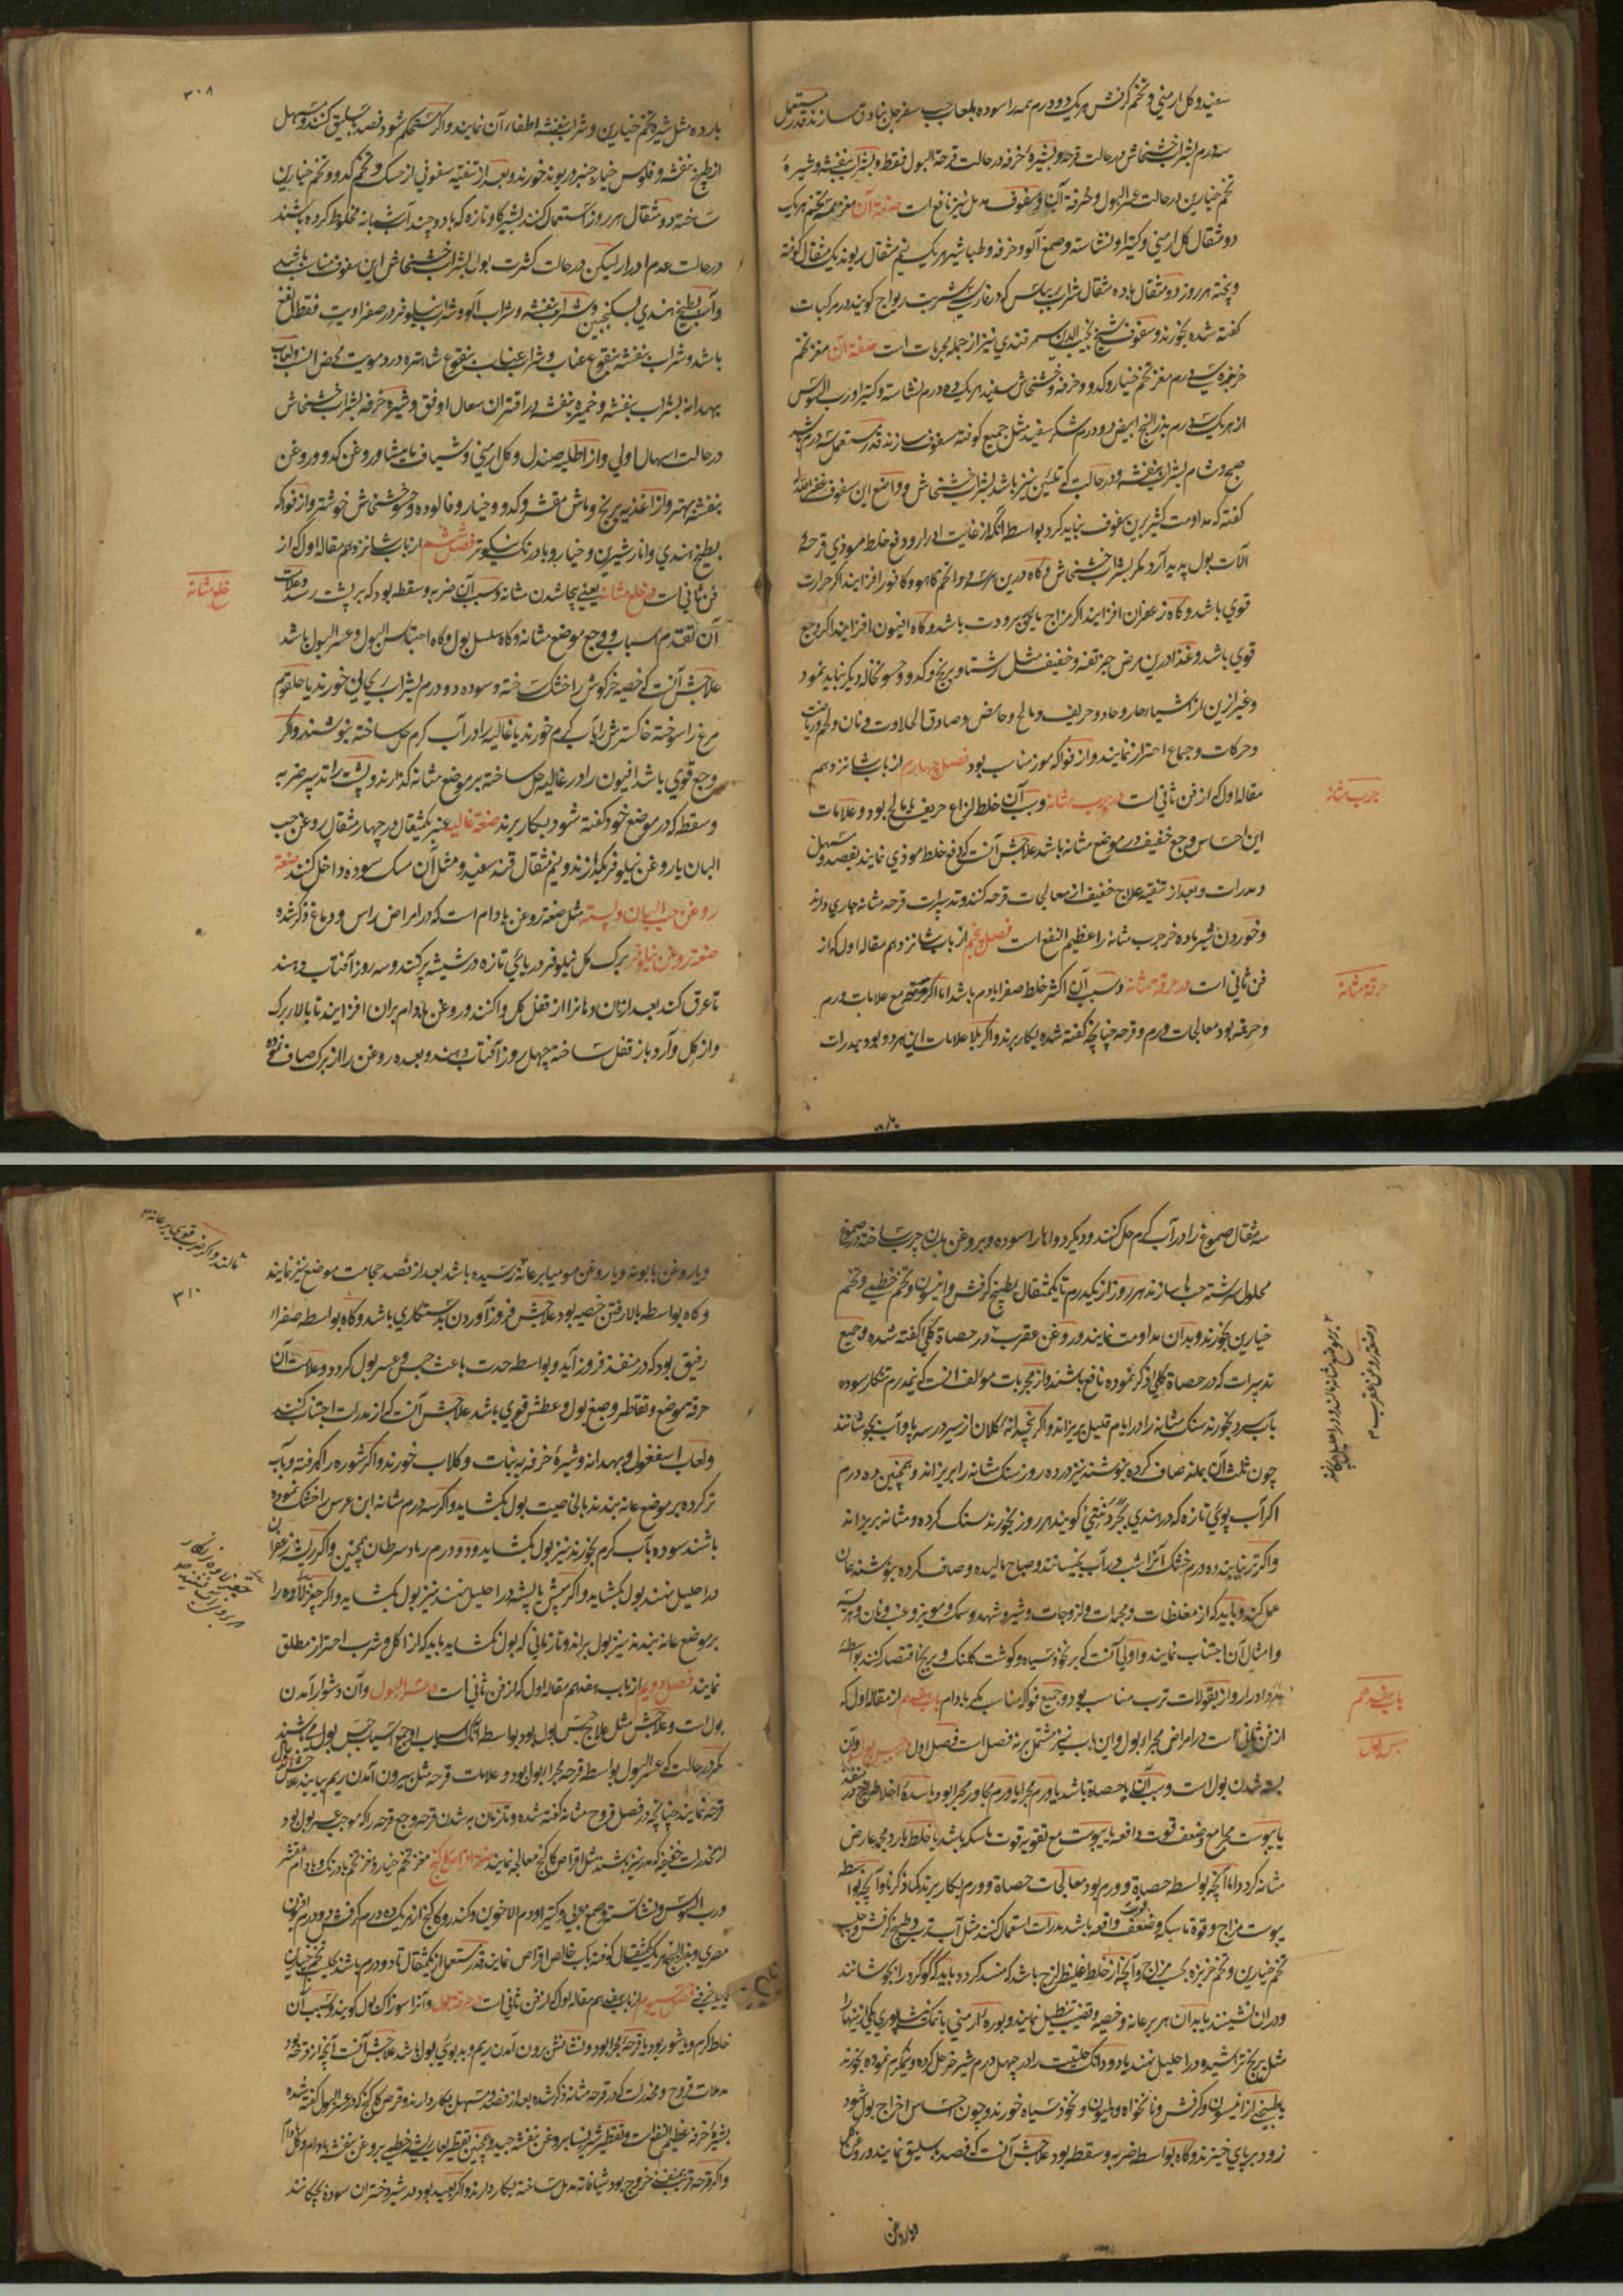 سفید و کل ارمنی و تخم کرفش هریک دو درم همه را سوده بلعاب حب سفرجل بنادق سازند قدر مستعمل
سه درم بشراب خشخاش در حالت قرحه و بشیرهٔ خرفه در حالت قرحة البول فقط و بشراب بنفشه و شیرهٔ
تخم خیارین در حالت عسر البول و حرقة آن و سفوف مدمل نیز نافع است صفة آن مغز همه تخم هریک
دو مثقال کل ارمنی و کتیرا و نشاسته و صمغ آلو و خرفه و طباشیر هریک نیم مثقال ریوند یک مثقال کوفته
و پخته هر روز دو مثقال با ده مثقال شراب ریباس که در فارسی شربت ریواج کویند در مرکبات
کفته شده بخورند و سفوف شیخ نجیب الدین سمرقندی نیز از جمله مجربات است صفة آن مغز تخم
خربزه سی درم مغز تخم خیار و کدو و خرفه و خشخاش سفید هریک ده درم نشاسته و کتیرا و رب السوس
از هریک سه درم بذر البنج ابیض دو درم شکر سفید مثل جمیع کوفته سفوف سازند قدر مستعمل سه درم باشد
صبح و شام بشراب بنفشه و در حالت که تلئین نیز باشد بشراب خشخاش و واضع این سفوف غفر الله
کفته که مداومت کثیر برین سفوف نباید کرد بواسطه آنکه از غایت ادرار و دفع خلط موذی قرحهٔ
آلات بول پدید آرد مکر بشراب خشخاش و کاه درین سه درم تخم کاهو و کافور افزایند اکر حرارت
قوی باشد و کاه زعفران افزایند اکر مزاج مایل ببرودت باشد و کاه افیون افزایند اکر وجع
قوی باشد و غذا درین مرض چیز تفه و خفیف مثل رشتا و برنج و کدو و حسو نخاله دیکر نباید نمود
و غیر ازین از اشیاء حار و حاد و حریف و مالح و حامض و صادق الحلاوت و نان و لحم و ریاضت
و حرکات و جماع احتراز نمایند و از فواکه موز مناسب بود فصل چهارم از باب شانزدهم
مقاله اول که از فن ثانی است در جرب مثانه و سبب آن خلط لزاع حریف یا مالح بود و علامات
این احساس وجع خفیف در موضع مثانه باشد علاجش آنست که دفع خلط موذی نمایند بفصد و مسهل
و مدرات و بعد از تنقیه علاج خفیف از معالجات قرحه کنند و تدبیرات قرحه مثانه جاری دارند
و خوردن شیر ماده خر جرب مثانه را عظیم النفع است فصل پنجم از باب شانزدهم مقاله اول که از
فن ثانی است در حرقة مثانه و سبب آن اکثر خلط صفرا بادم باشد اما اکر مع علامات ورم
و قرحه بود معالجات ورم و قرحه چنانچه کفته شده بکار برند و اکر بلا علامات این هر دو بود بمدرات
جرب مثانه
حرقة مثانه
۳۰۸
بارده مثل شیره تخم خیارین و شراب بنفشه اطفاء آن نمایند و اکر مستحکم شود فصد باسلیق کنند و مسهل
از طبیخ بنفشه و فلوس خیار چنبر و ریوند خورند و بعد از تنقیه سفوفی از حسک و تخم کدو و تخم خیارین
ساخته دو مثقال هر روز استعمال کنند بشیر کاو تازه که با دو چند آب شبانه مخلوط کرده باشند
در حالت عدم ادرار لیکن در حالت کثرت بول بشراب خشخاش این سفوف مناسب باشد
و آب بطیخ هندی بسکنجبین و شراب بنفشه و شراب آلو و شراب نیلوفر در صفراویت فقط انفع
باشد و شراب بنفشه بنقوع عناب و شراب عناب بنقوع شاهتره در دمویت محض انسب و لعاب
بهدانه بشراب بنفشه و خمیره بنفشه در اقتران سعال اوفق و شیره خرفه بشراب خشخاش
در حالت اسهال اولی و از اطلیه صندل و کل ارمنی و شیاف مامیثا و روغن کدو و روغن
بنفشه بهتر و از اغذیه برنج و ماش مقشر و کدو و خیار و فالوده و حسو خشخاش خوشتر و از فواکه
بطیخ هندی و انار شیرین و خیار و بادرنک نیکوتر فصل ششم از باب شانزدهم مقاله اول که از
فن ثانی است در خلع مثانه یعنی بیجا شدن مثانه و سبب آن ضربه و سقطه بود که بر پشت رسد و علامات
آن تقدم اسباب و وجع موضع مثانه و کاه سلسل بول و کاه احتباس البول و عسر البول باشد
علاجش آنست که خصیه خرکوش را خشک ساخته و سوده دو درم بشراب ریحانی خورند یا حلقوم
مرغ را سوخته خاکسترش را بآب کرم خورند یا غالیه را در آب کرم حل ساخته بنوشند و اکر
وجع قوی باشد افیون را در غالیه حل ساخته بر موضع مثانه کذارند و پشت را تدبیر ضربه
و سقطه که در موضع خود کفته شود بکار برند صفة غالیه عنبر یکمثقال در چهار مثقال روغن حب
البان یا روغن نیلوفر بکدازند و نیم مثقال قند سفید و مثل آن مسک سوده داخل کنند صفة
روغن حب البان و پسته مثل صفة روغن بادام است که در امراض راس و دماغ ذکر شده
صفة روغن نیلوفر برک کل نیلوفر دریائی تازه در شیشه پر کنند و سه روز آفتاب دهند
تا عرق کند بعد ازان دهانرا از قفل کل وا کنند و روغن بادام بران افزایند تا بالاء برک
و از کل و آرد باز قفل ساخته چهل روز آفتاب دهند و بعده روغن را از برک صاف نموده
خلع مثانه
سه مثقال صموغ را در آب کرم حل کنند و دیکر دواها را سوده و بروغن بلسان چرب ساخته در صموغ
محلول سرشته حب ها سازند هر روز از یکدرم تا یکمثقال بطبیخ کرفش و انیسون و تخم خطمی و تخم
خیارین بخورند و بدان مداومت نمایند و روغن عقرب در حصاة کلی کفته شده و جمیع
تدبیرات که در حصاة کلی ذکر نموده نافع باشند و از مجربات مؤلف است که نیمدرم تنکار سوده
بآب سرد بخورند سنک مثانه را در ایام قلیل بریزاند و اکر پنجدانه کلان از سیر در سه پاو آب بجوشانند
چون ثلث آن بماند صاف کرده بنوشند نیز در ده روز سنک مثانه را بریزاند و همچنین ده درم
اکر آب پوئی تازه که در هندی کویند هر روز بخورند سنک کرده و مثانه بریزاند
و اکر تر نیابند ده درم خشک آنرا شب در آب بخیسانند و صباح مالیده و صاف کرده بنوشند همان
عمل کند و باید که از مغلظات و مجمدات و لزوجات و شیر و شهد و سمک و مویز و عنب و نان و هریسه
و امثال آن اجتناب نمایند و اولی آنست که بر نخود سیاه و کوشت کلنک و برنج اقتصار کنند بواسطه
ادرار و از بقولات ترب مناسب بود و جمیع فواکه مناسب مکر بادام باب هفدهم از مقاله اول که
از فن ثانی است در امراض مجراء بول و این باب نیز مشتمل بر نه فصل است فصل اول در حبس بول و آن
بسته شدن بول است و سبب آن یا حصاة باشد یا ورم مجرا یا ورم مجاور مجرا بود یا سدهٔ اخلاط لزج در منفذ
یا یبوست مجرا مع ضعف قوت دافعه یا یبوست مع تقویه قوت ماسکه باشد یا خلط بارد مجمد عارض
مثانه کردد اما آنچه بواسطه حصاة و ورم بود معالجات حصاة و ورم بکار برند کما ذکرنا و آنچه بواسطه
یبوست مزاج و قوة ماسکه و ضعف قوت دافعه باشد مدرات استعمال کنند مثل آب ترب و طبیخ کرفش و حلبه
تخم خیارین و تخم خربزه بحسب مزاج و آنچه از خلط غلیظ لزج باشد که منسد کردد باید که کوکرد را بجوشانند
و دران نشینند یا بدان هر بر عانه و خصیه و قضیب تنطیل نمایند و بوره ارمنی یا نمک نیشابوری یکی ازینهارا
مثل برنج تراشیده در احلیل نهند یا دو دانک حلتیت را در چهل درم شیر خر حل کرده و نیمکرم نموده بخورند
یا طبیخی از انیسون و کرفش و نانخواه و هلیون و نخود سیاه خورند و چون احساس اخراج بول شود
زود بر پای خیزند و کاه بواسطه ضربه و سقطه بود علاجش آنست که فصد باسلیق نمایند و روغن کل
و یا روغن
صفة روغن عقرب
باب هفدهم
حبس بول
۳۱۰
و یا روغن بابونه و یا روغن مومیا بر عانه رسیده باشد بعد از فصد حجامت موضع نیز نمایند
و کاه بواسطه بالا رفتن خصیه بود علاجش فرود آوردن بدستکاری باشد و کاه بواسطه صفراء
رقیق بود که در منفذ فرود آید و بواسطه حدت باعث حبس و عسر بول کردد و علامت آن
حرقة موضع و تقاطر و صبغ بول و عطش قوی باشد علاجش آنست که از مدرات اجتناب کنند
و لعاب اسفغول و بهدانه و شیرهٔ خرفه به نبات و کلاب خورند و اکر شوره را کرفته و بآب
تر کرده بر موضع عانه بندند بالخاصیت بول بکشاید و اکر سه درم مثانه ابن عرس را خشک نموده
باشند سوده بآب کرم بخورند نیز بول بکشاید و دو درم رماد سرطان همچنین و اکر ریشه زعفران
در احلیل نهند بول بکشاید و اکر سپش یا پشه در احلیل نهند نیز بول بکشاید و اکر
بر موضع عانه بندند نیز بول براند و تا زمانی که بول نکشاید باید که از اکل و شرب احتراز مطلق
نمایند فصل دویم از باب هفدهم مقاله اول که از فن ثانی است در عسر البول و آن دشوار آمدن
بول است و علاجش مثل علاج حبس بول بود بواسطه آنکه اسباب و وجع اسباب حبس بول می باشند
مکر در حالت که عسر البول بواسطه قرحه مجراء بول بود و علامات قرحه مثل بیرون آمدن ریم بیابند علاج
قرحه نمایند چنانچه در فصل قروح مثانه کفته شده و تا زمان به شدن قرحه وجع قرحه را که موجب عسر بول بود
از مخدرات خفیفه که مدر نیز باشند مثل اقراص کاکنج معالجه نمایند صفة اقراص کاکنج مغز تخم خیار و مغز تخم بادرنک و بادام مقشر
و رب السوس و نشاسته و صمغ عربی و کتیرا و دم الاخوین و کندر و کاکنج از هریک ده درم کرفش دو درم افیون
مصری و بذر البنج هریک یکمثقال کوفته بآب خالص اقراص نمایند قدر مستعمل از یکمثقال تا دو درم باشد
فصل سیوم از باب هفدهم مقاله اول که از فن ثانی است در حرقة بول و آنرا سوزاک بول کویند و سبب آن
خلط کرم و یا شور بود یا قرحهٔ مجرا بود و نشانش برون آمدن ریم و بدبوئی بول باشد علاجش آنست آنچه از قرحه بود
مدملات قروح و مخدرات که در قرحه مثانه ذکر شده بعد از فصد و مسهل بکار دارند و قرص کاکنج که در عسر البول کفته شده
بشیرهٔ خرفه عظیم النفع است و تقطیر شیر نسا بروغن بنفشه جید و همچنین تقطیر لعاب ریشه خطمی بروغن بنفشه بادام و کل
و اکر قرحه قریب بمنفذ خروج بود شیافاته مدمل ساخته بکار دارند و اکر بعید بود در شیر دختران سوده بچکانند